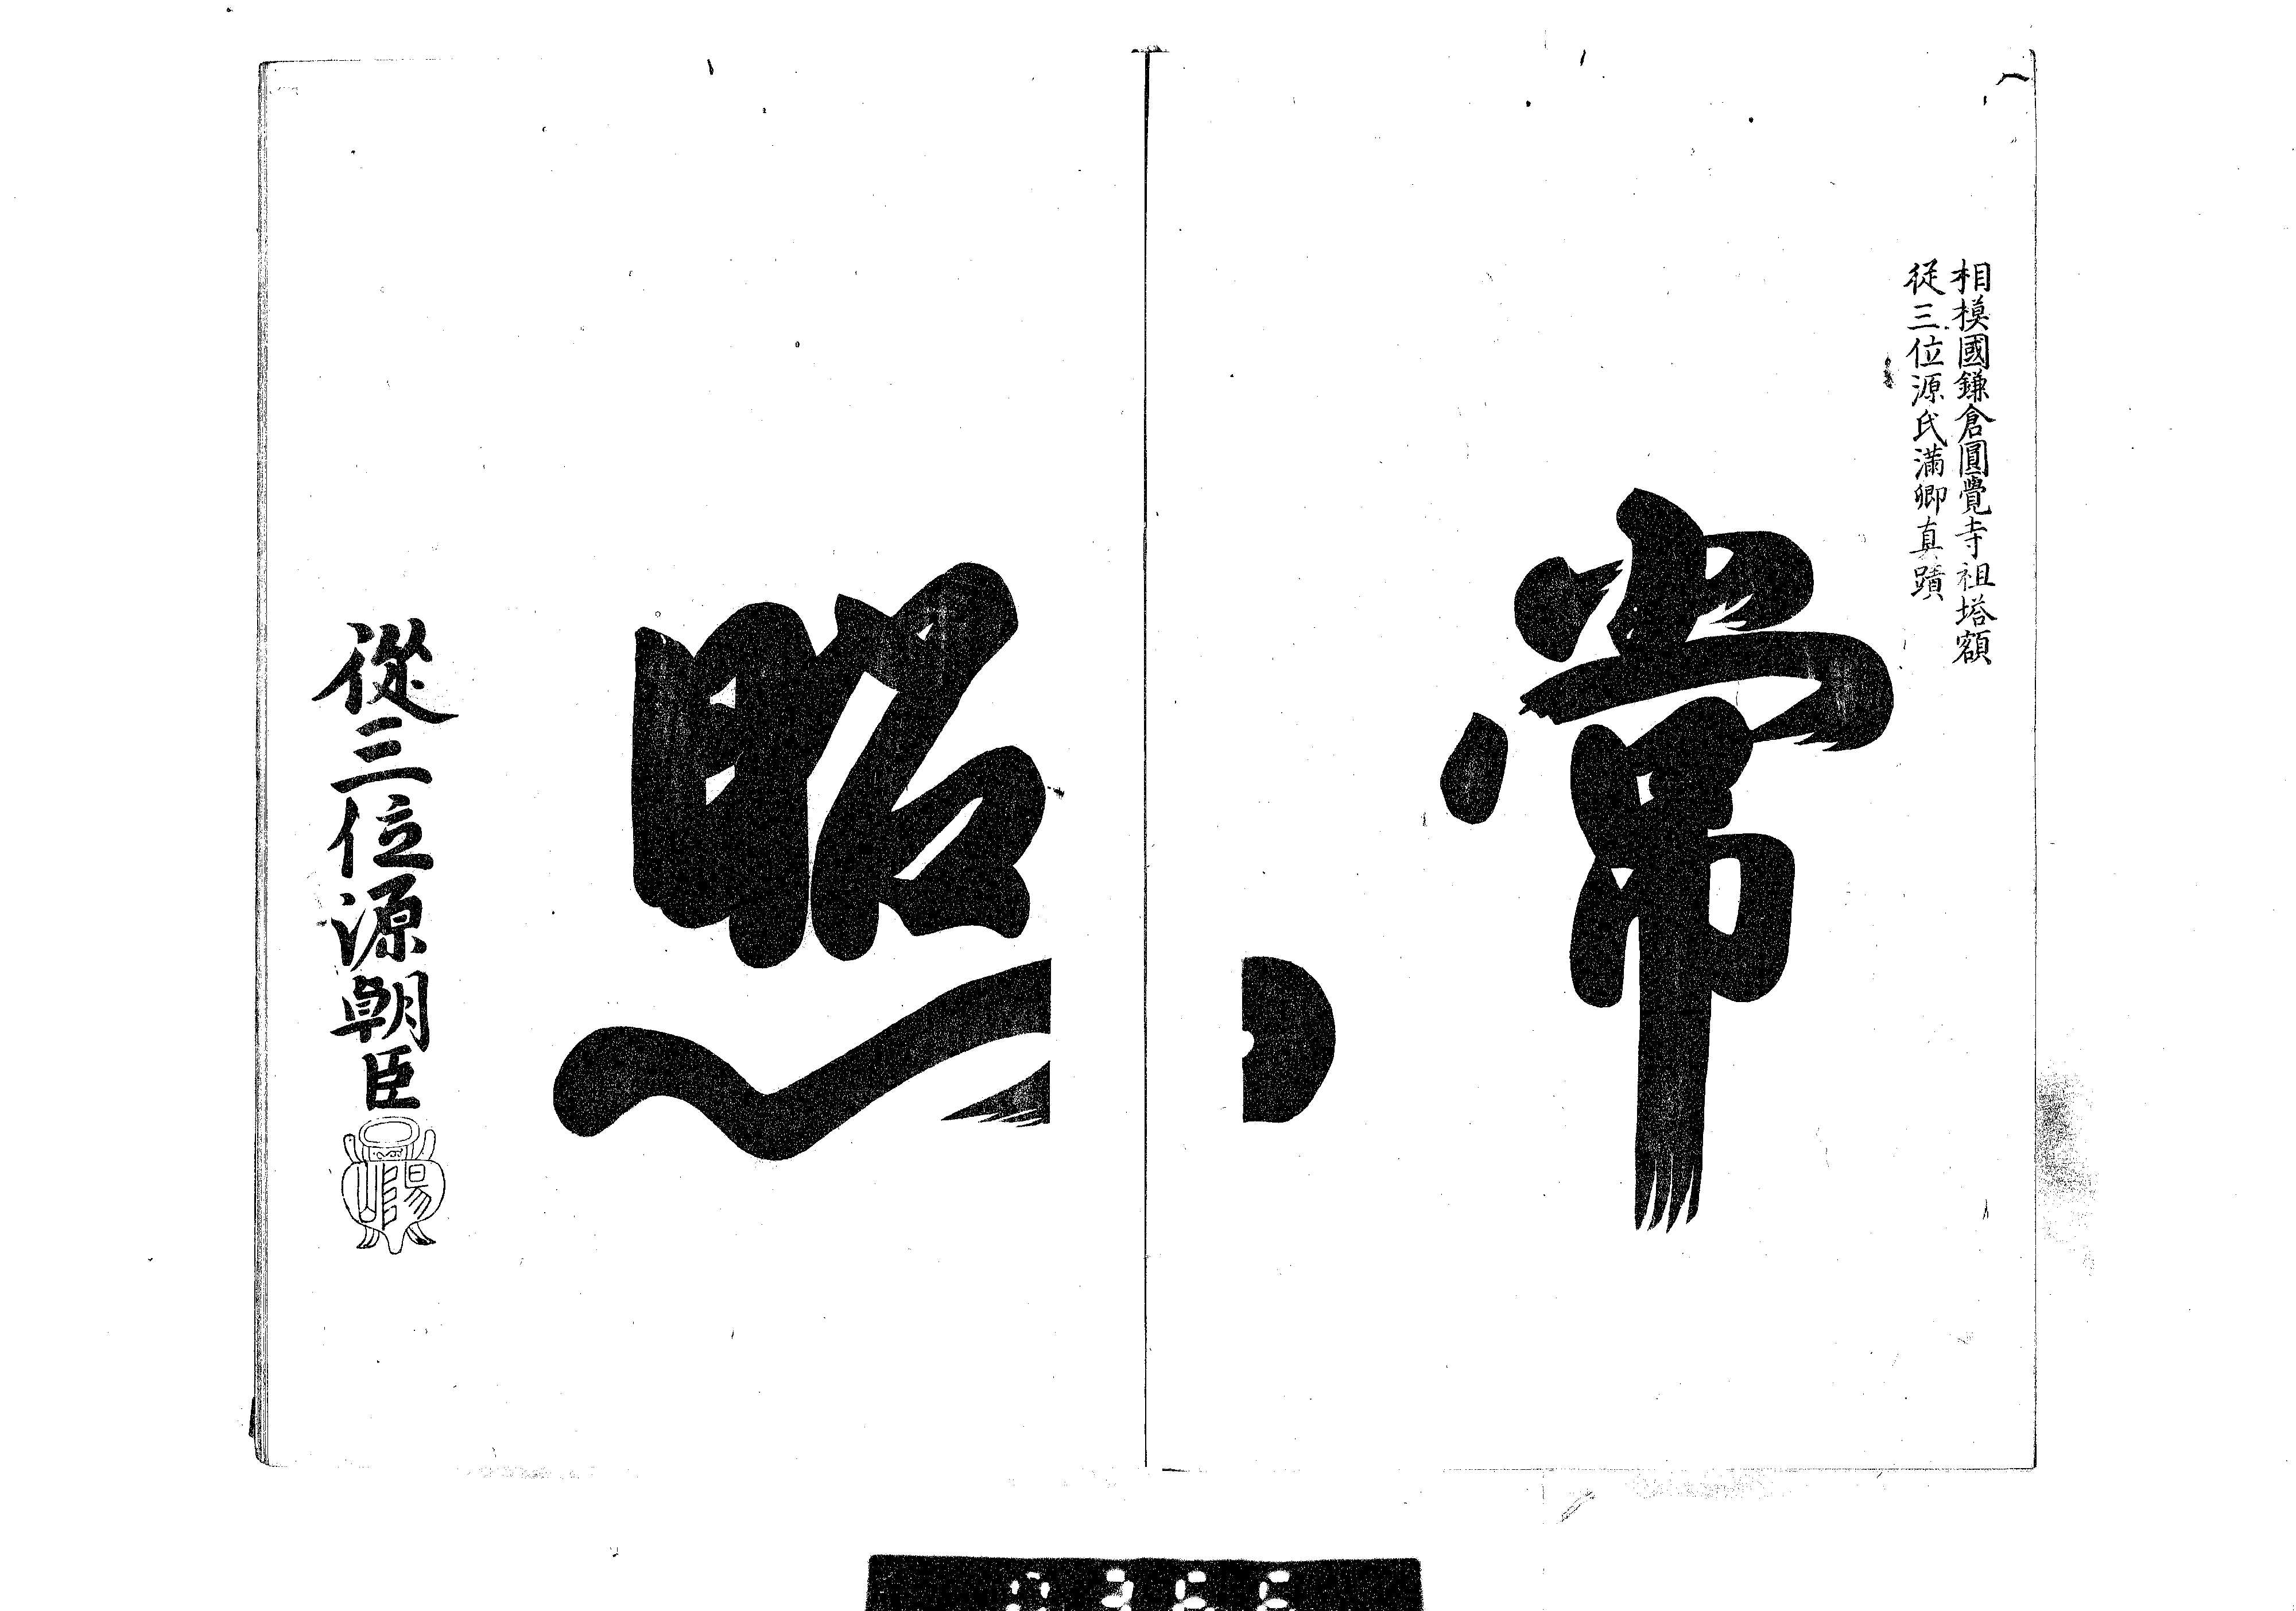 相模國鎌倉圓覺寺祖塔額
從三位源氏滿卿真蹟
常
照
從三位源朝臣